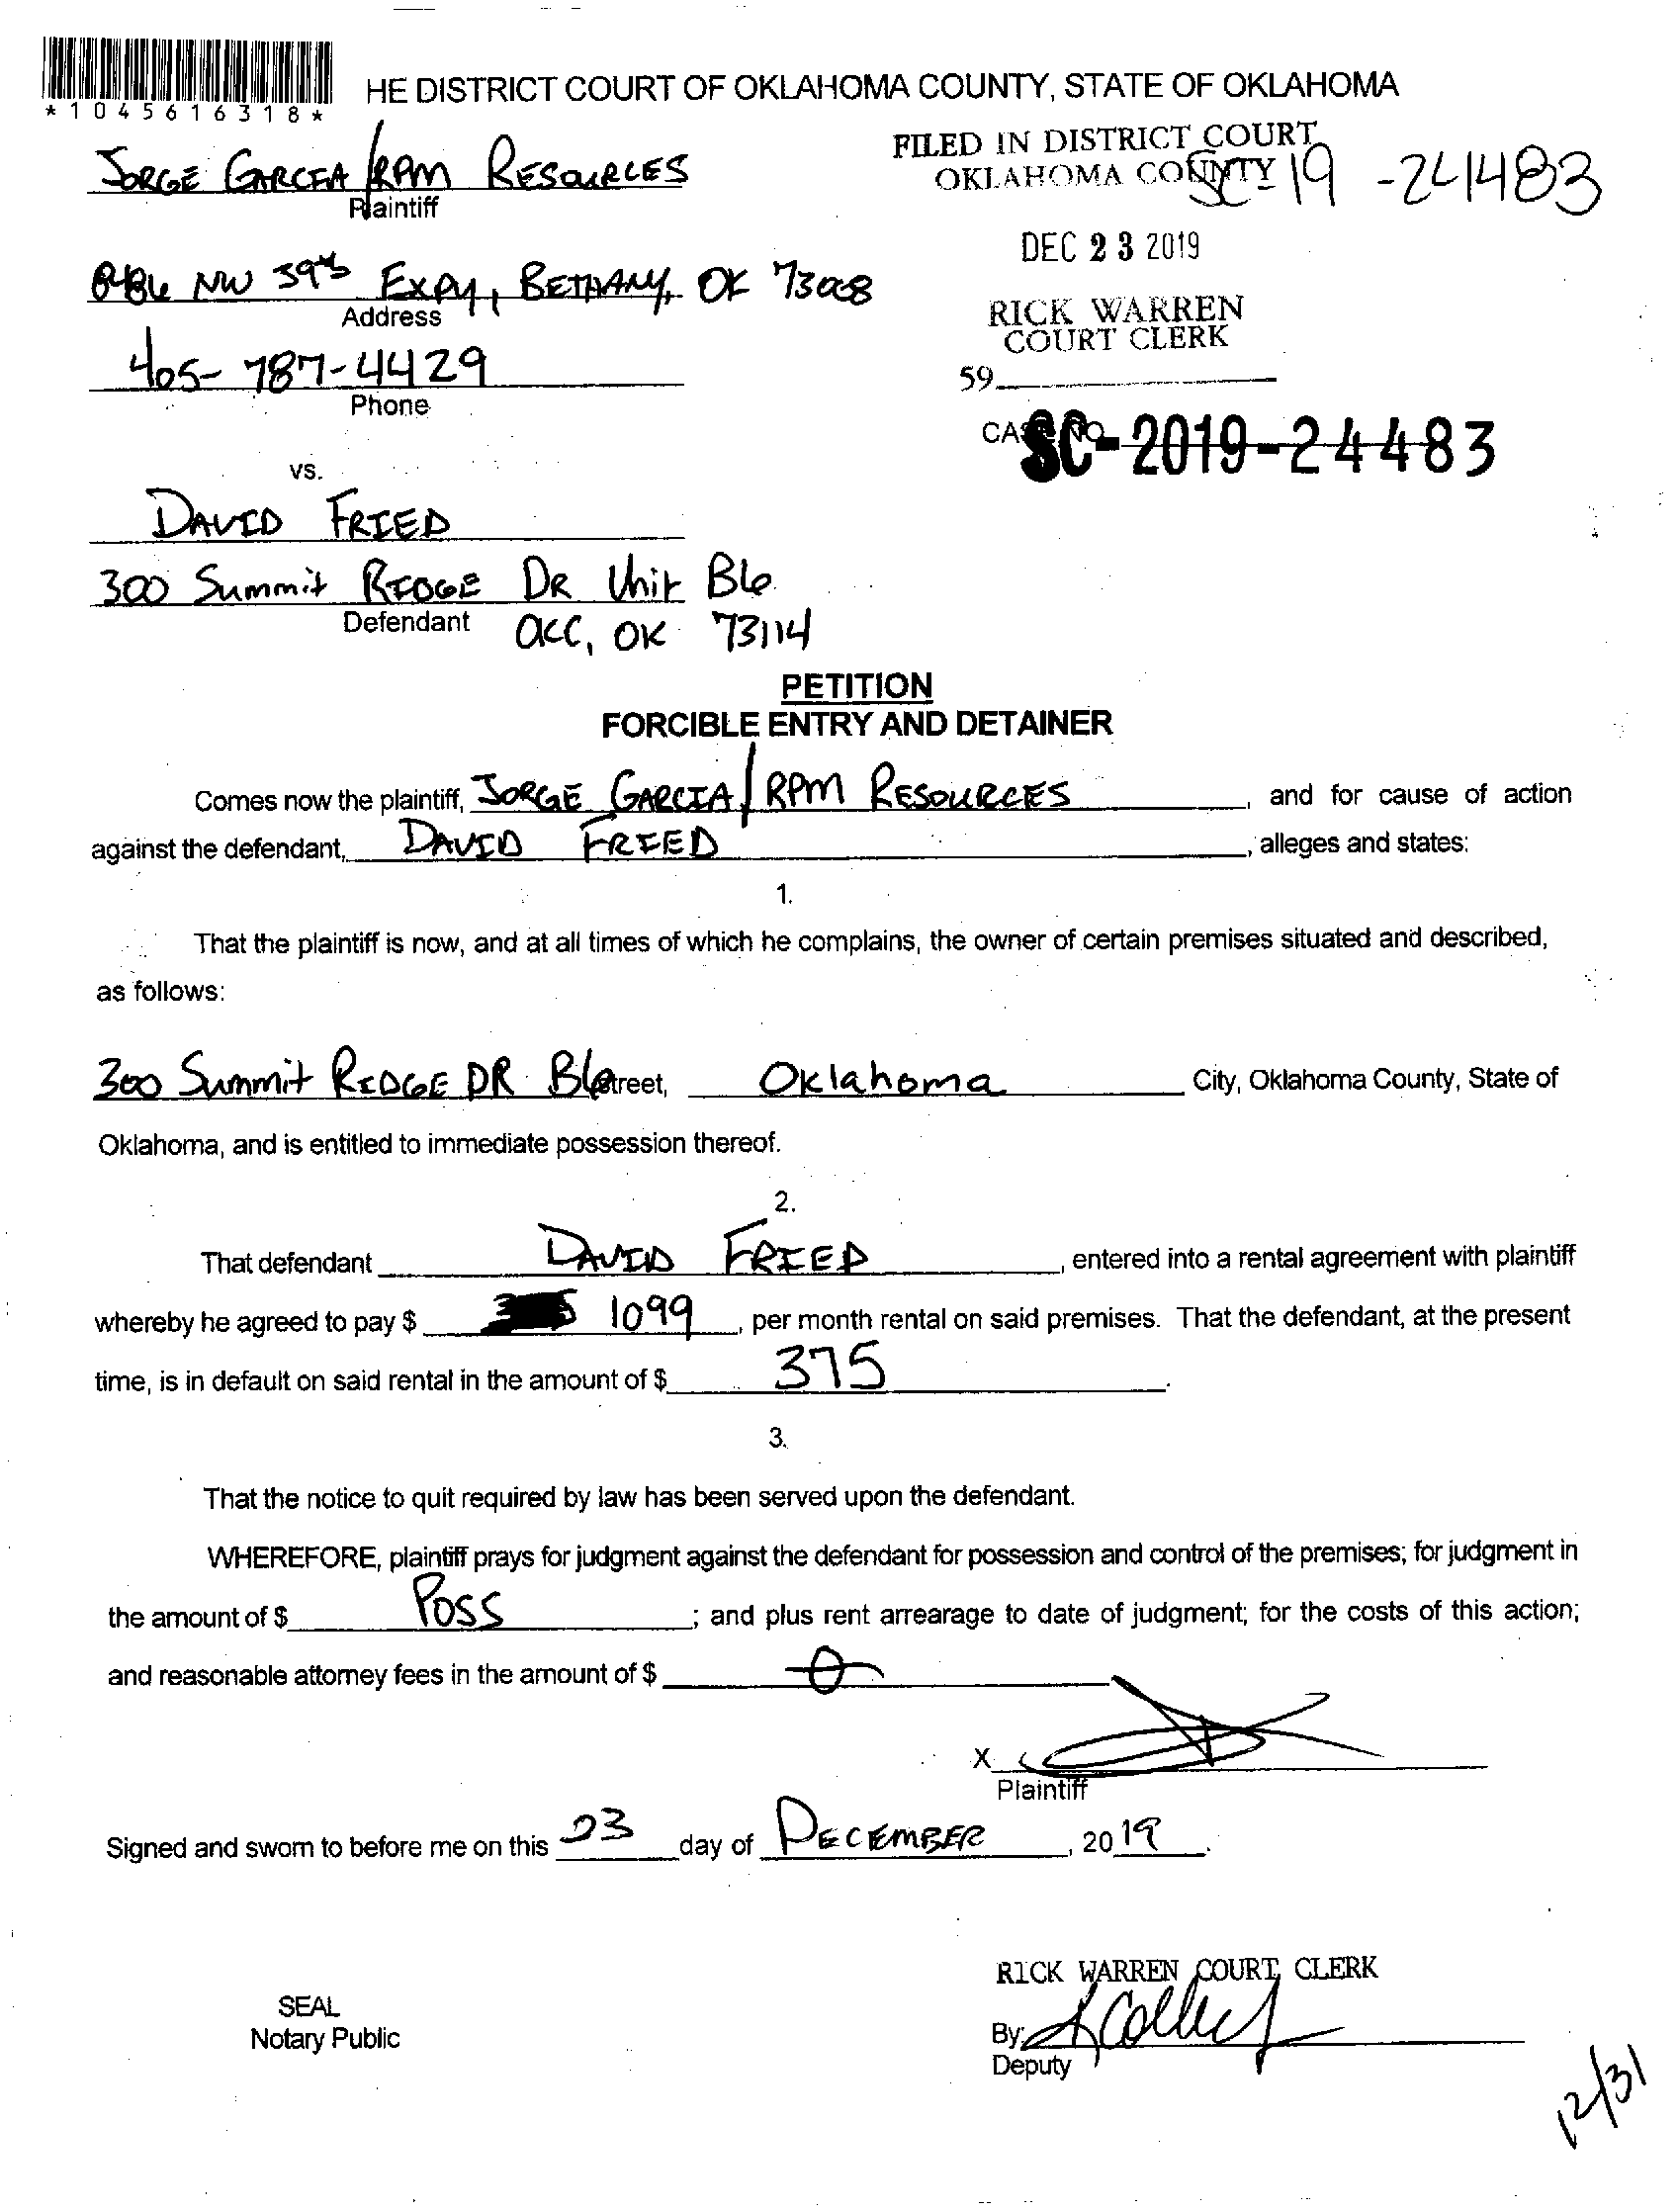 *1045616318*
HE DISTRICT COURT OF OKLAHOMA COUNTY, STATE OF OKLAHOMA
JORGE GARCIA/RPM RESOURCES
Plaintiff
FILED IN DISTRICT COURT
OKLAHOMA COUNTY
SC-19-24483
DEC 23 2019
NW 39th EXPY, BETHANY, OK 73008
Address
RICK WARREN
COURT CLERK
405-787-4429
Phone
59
SC-2019-24483
vs.
DAVID FRIED
300 Summit RIDGE DR Unit B6
Defendant
OKC, OK 73114
PETITION
FORCIBLE ENTRY AND DETAINER
Comes now the plaintiff, JORGE GARCIA/RPM RESOURCES, and for cause of action
against the defendant, DAVID FRIED, alleges and states:
1.
That the plaintiff is now, and at all times of which he complains, the owner of certain premises situated and described,
as follows:
300 Summit RIDGE DR B6 Street, Oklahoma City, Oklahoma County, State of
Oklahoma, and is entitled to immediate possession thereof.
2.
That defendant DAVID FRIED, entered into a rental agreement with plaintiff
whereby he agreed to pay $ 1099, per month rental on said premises. That the defendant, at the present
time, is in default on said rental in the amount of $ 375.
3.
That the notice to quit required by law has been served upon the defendant.
WHEREFORE, plaintiff prays for judgment against the defendant for possession and control of the premises; for judgment in
the amount of $ POSS; and plus rent arrearage to date of judgment; for the costs of this action;
and reasonable attorney fees in the amount of $ 0
X
Plaintiff
Signed and sworn to before me on this 23 day of DECEMBER, 2019.
RICK WARREN COURT CLERK
SEAL
Notary Public
By:
Deputy
12/31